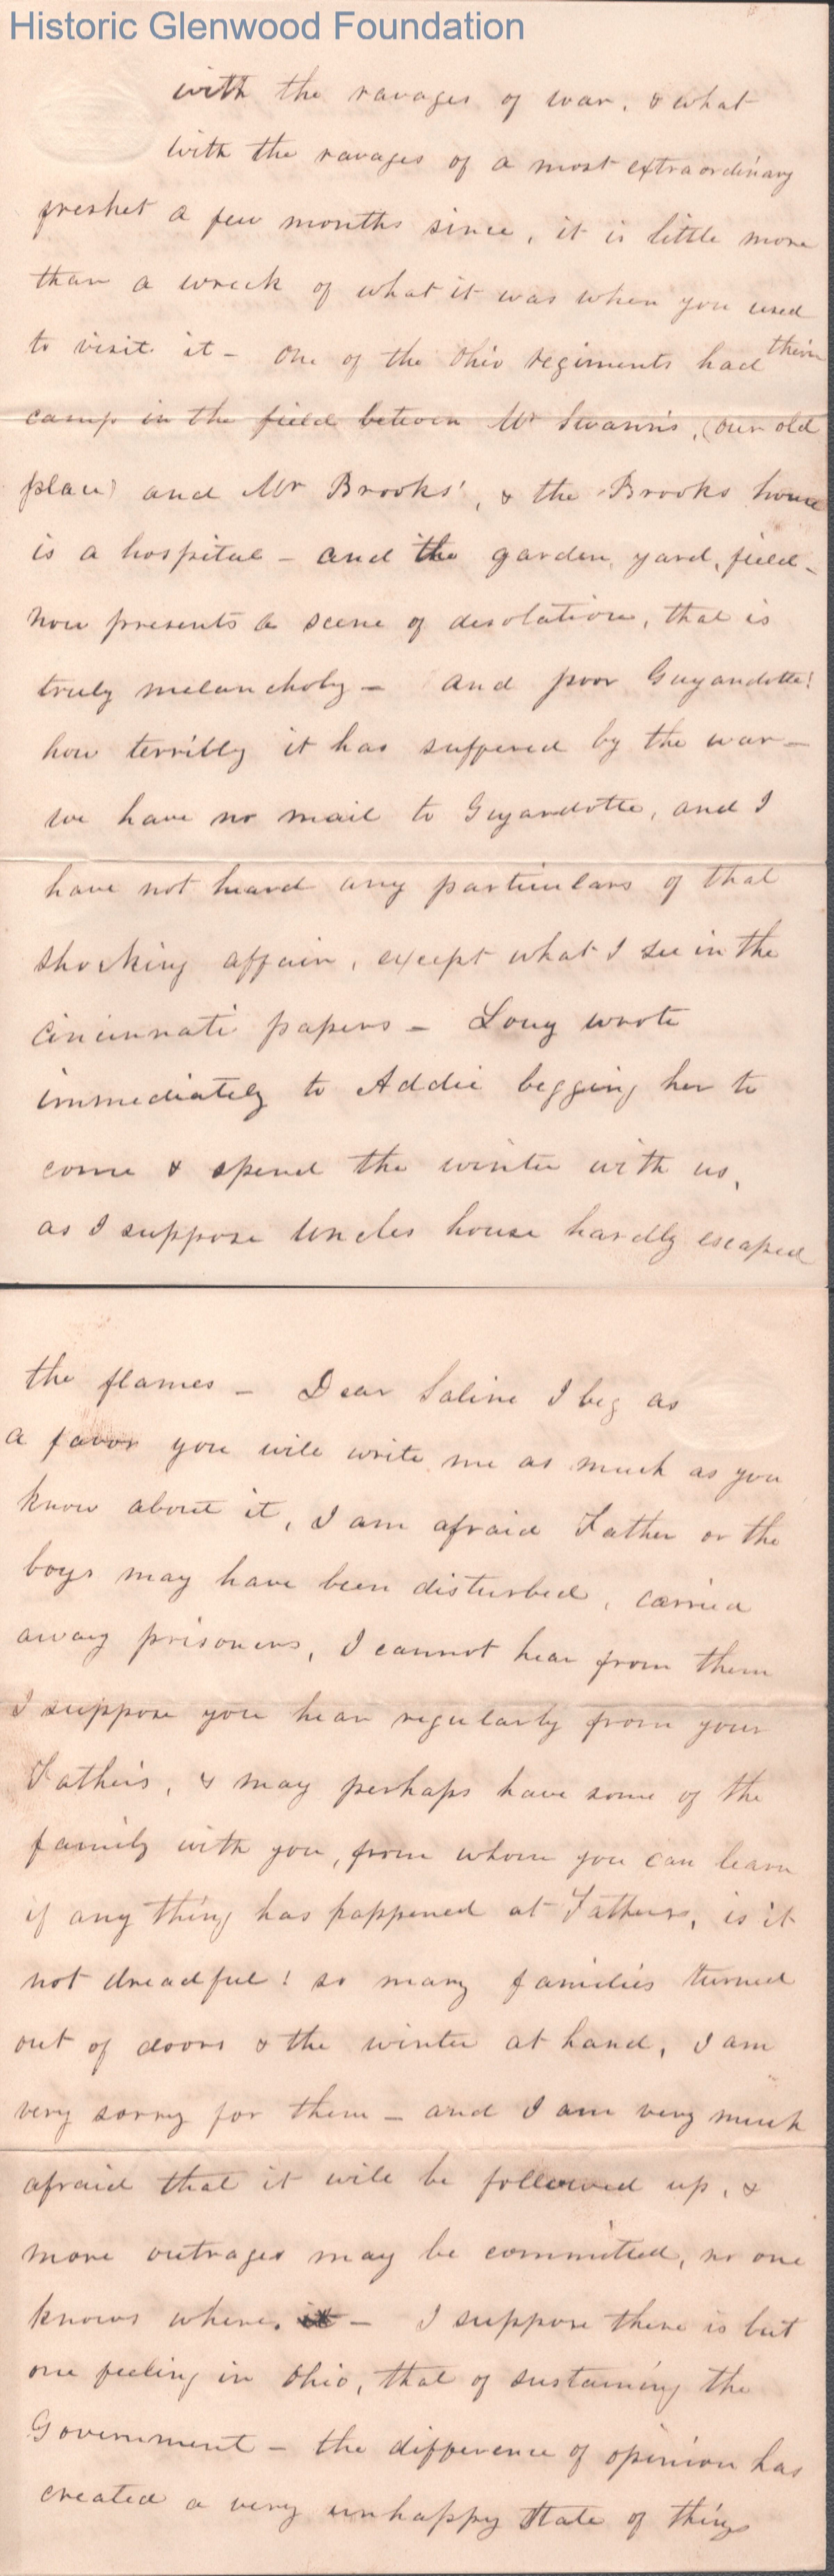 Historic Glenwood Foundation
with the ravages of war, & what
with the ravages of a most extraordinary
freshet a few months since, it is little more
than a wreck of what it was when you used
to visit it - One of the Ohio regiments had their
camp in the field between Mr Swann's, (our old
place) and Mr Brooks', & the Brooks house
is a hospital - and the garden, yard, field -
now presents a scene of desolation, that is
truly melancholy - And poor Guyandotte!
how terribly it has suffered by the war -
we have no mail to Guyandotte, and I
have not heard any particulars of that
shocking affair, except what I see in the
Cincinnati papers - Louy wrote
immediately to Addie begging her to
come & spend the winter with us,
as I suppose Uncles house hardly escaped
the flames - Dear Saline I beg as
a favor you will write me as much as you
know about it, I am afraid Father or the
boys may have been disturbed, carried
away prisoners, I cannot hear from them
I suppose you hear regularly from your
Father's, & may perhaps have some of the
family with you, from whom you can learn
if any thing has happened at Fathers, is it
not dreadful! so many families turned
out of doors & the winter at hand, I am
very sorry for them - and I am very much
afraid that it will be followed up, &
more outrages may be committed, no one
knows where. it - I suppose there is but
one feeling in Ohio, that of sustaining the
Government - the difference of opinion has
created a very unhappy state of things